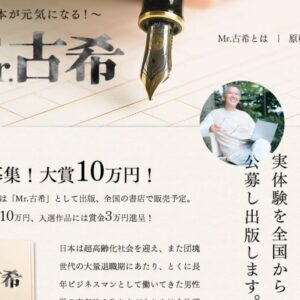 本が元気になる！～
Mr.古希
Mr.古希とは ｜ 原
募集！大賞10万円！
は「Mr.古希」として出版、全国の書店で販売予定。
10万円、入選作品には賞金3万円進呈！
実体験を全国から
公募し出版します。
日本は超高齢化社会を迎え、また団塊
世代の大量退職期にあたり、とくに長
年ビジネスマンとして働いてきた男性
希